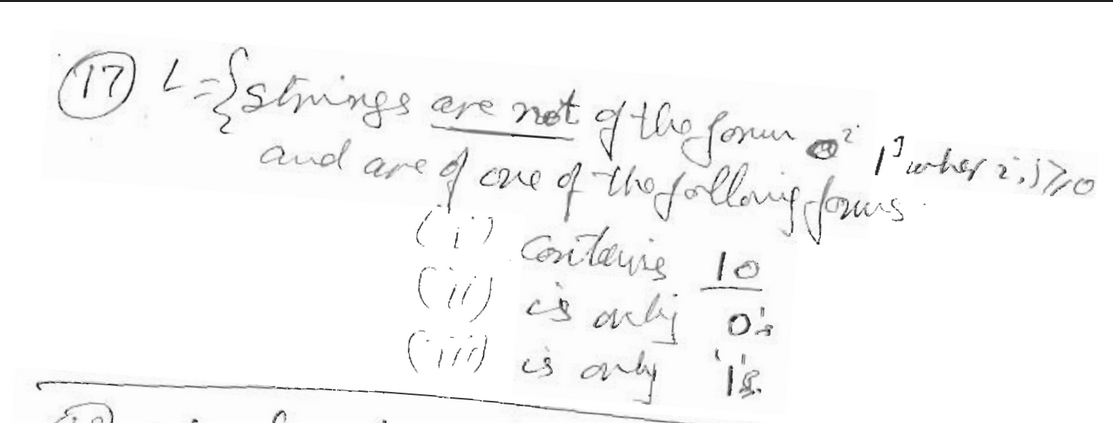 (17) L = { strings are not of the form 0^i 1^j wher i, j ≥ 0
and are of one of the following forms.
(i) contains 10
(ii) is only 0's
(iii) is only 1's.